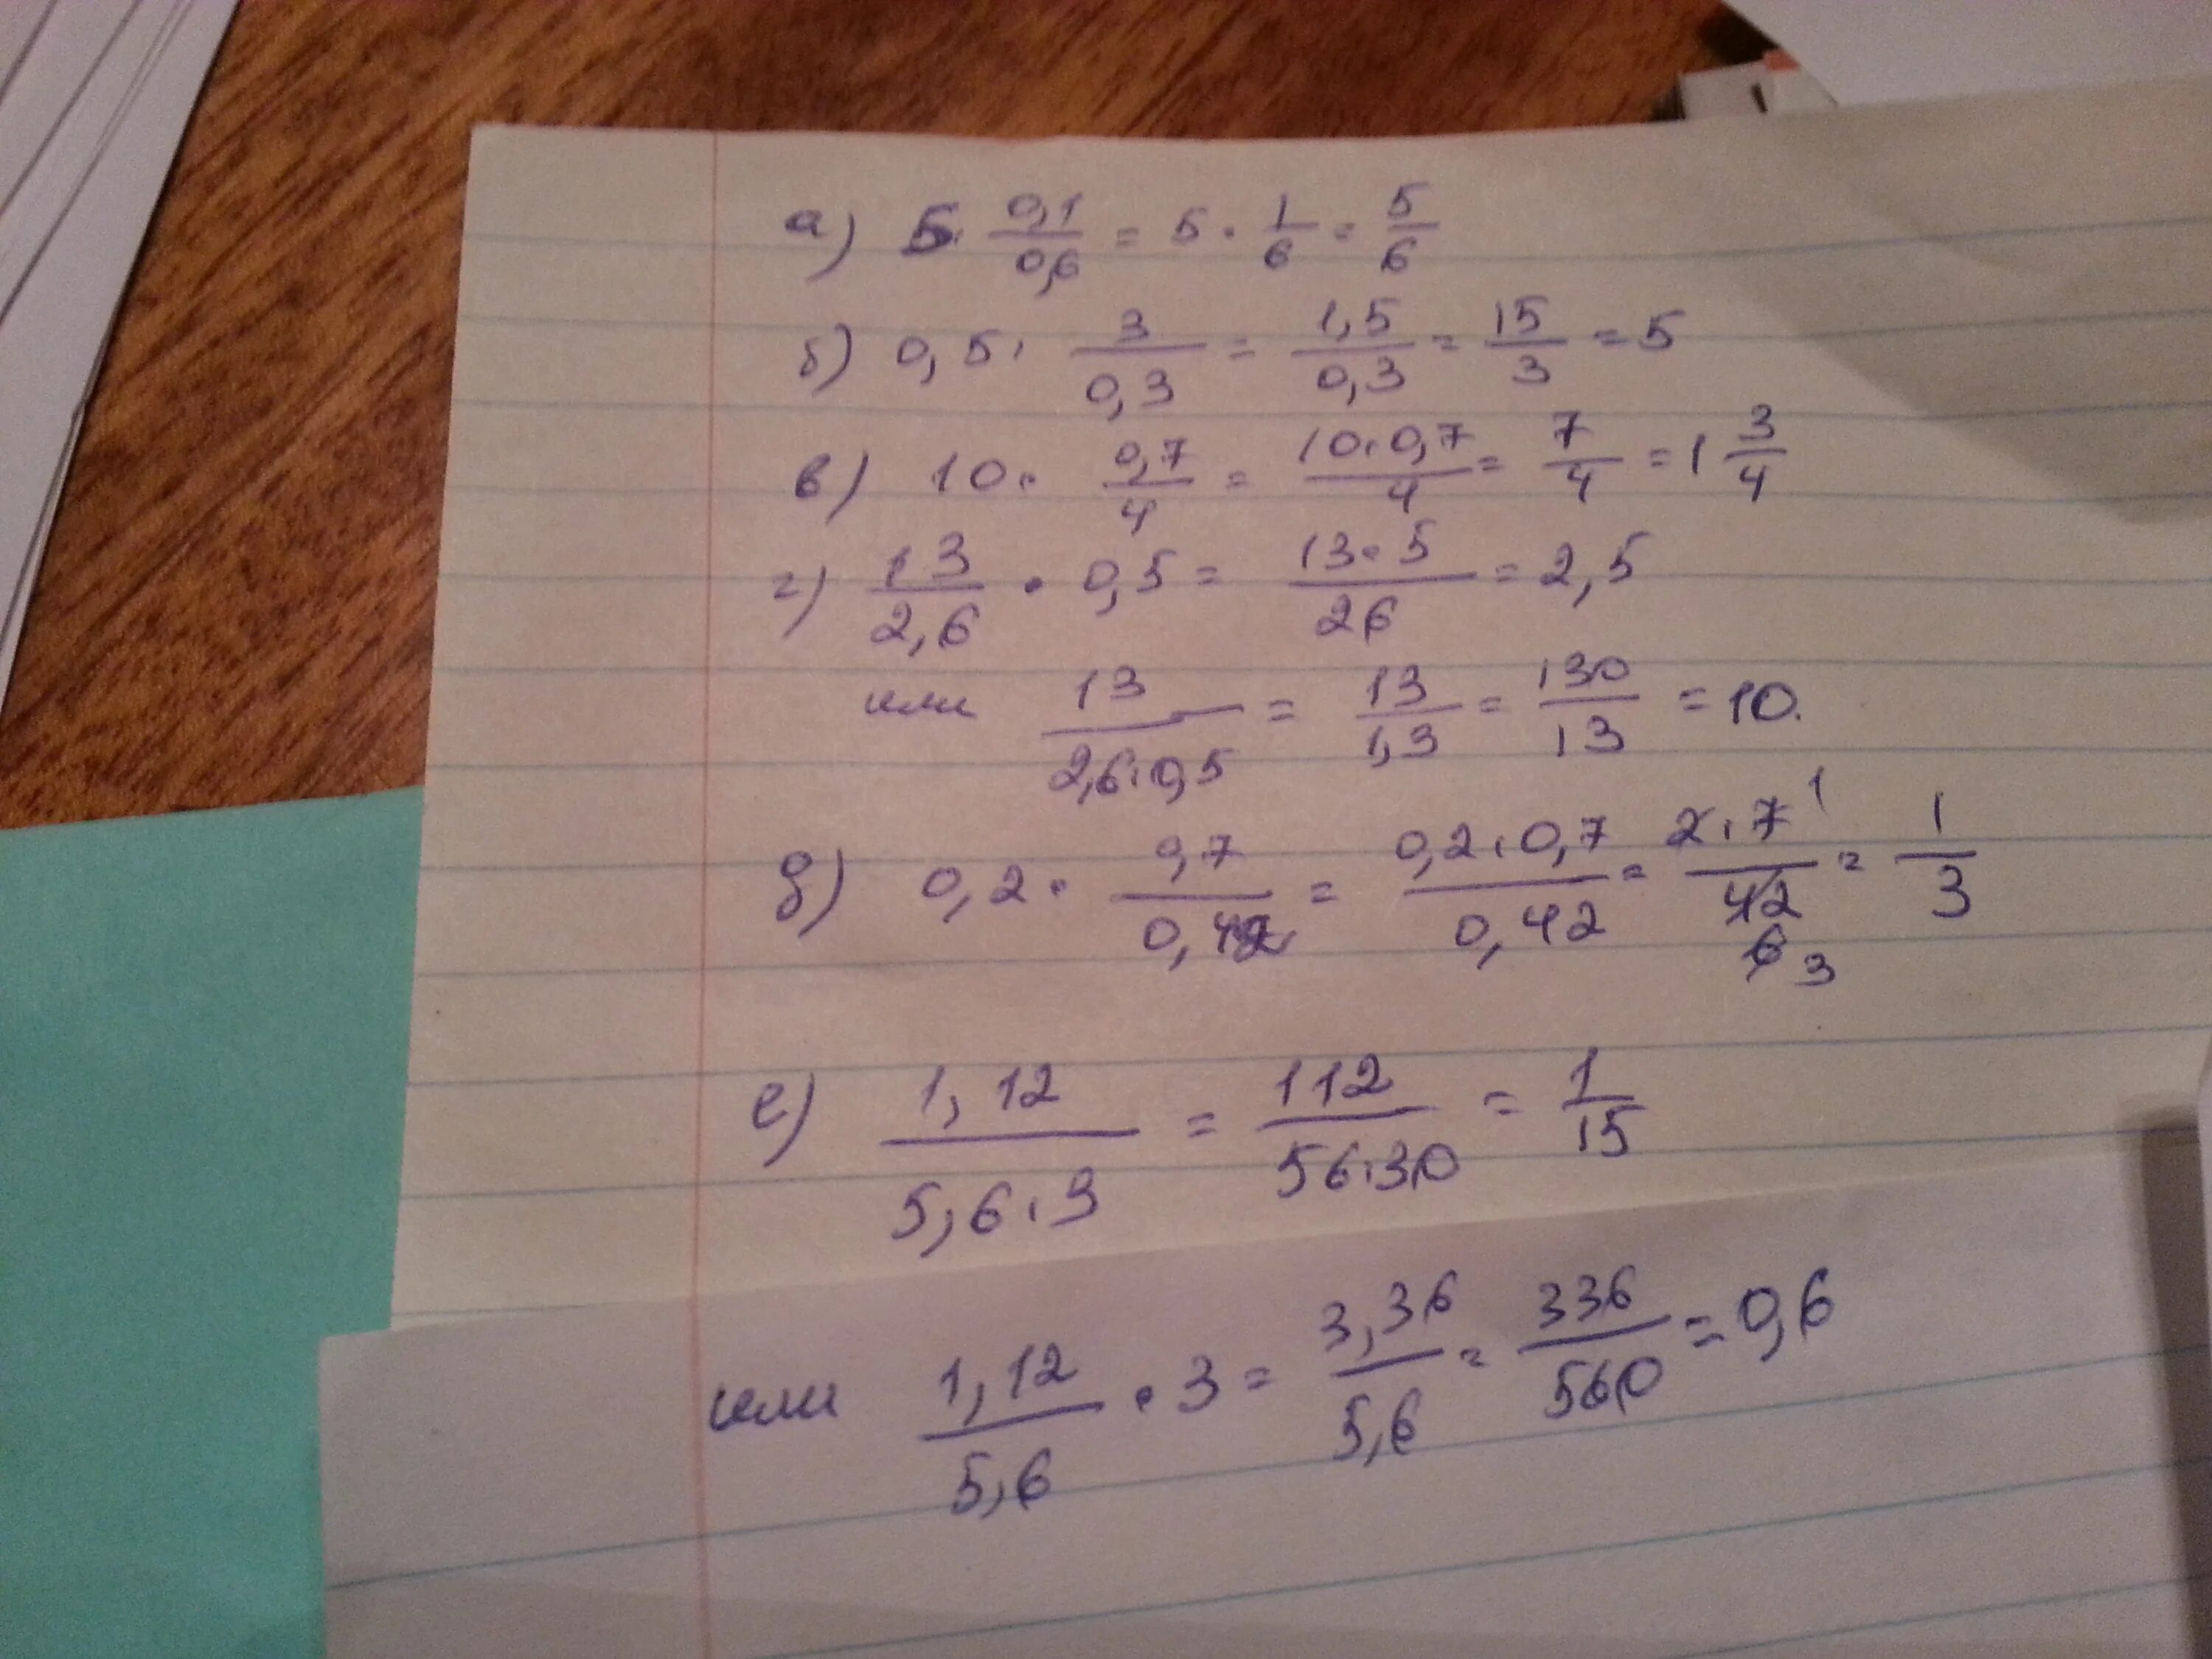 а) 5 · 0,1/0,6 = 5 · 1/6 = 5/6
б) 0,5 · 3/0,3 = 1,5/0,3 = 15/3 = 5
в) 10 · 0,7/4 = 10·0,7/4 = 7/4 = 1 3/4
г) 13/2,6 · 0,5 = 13·5/26 = 2,5
или 13/2,6·0,5 = 13/1,3 = 130/13 = 10.
д) 0,2 · 0,7/0,42 = 0,2·0,7/0,42 = 2·7 1/42 6 3 = 1/3
е) 1,12/5,6·3 = 112/56·30 = 1/15
или 1,12/5,6 · 3 = 3,36/5,6 = 336/560 = 0,6